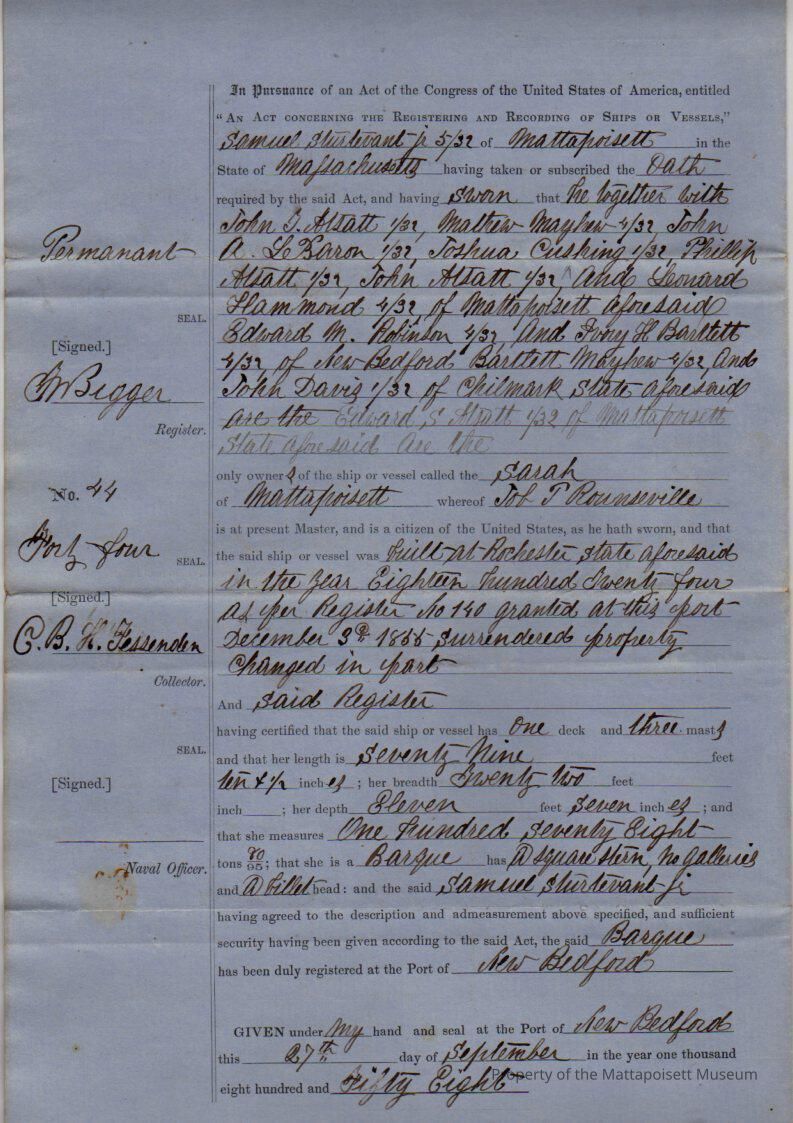 In Pursuance of an Act of the Congress of the United States of America, entitled
"AN ACT CONCERNING THE REGISTERING AND RECORDING OF SHIPS OR VESSELS,"
Samuel Sturtevant jr 5/32 of Mattapoisett in the
State of Massachusetts having taken or subscribed the Oath
required by the said Act, and having Sworn that he together with
John T. Atsatt 1/32, Mathew Mayhew 4/32, John
A. LeBaron 1/32, Joshua Cushing 1/32, Phillip
Atsatt 1/32, John Atsatt 1/32, And Leonard
Hammond 4/32 of Mattapoisett aforesaid
Edward M. Robinson 4/32, And Ivory H Bartlett
4/32 of New Bedford Bartlett Mayhew 4/32, And
John Davis 1/32 of Chilmark State aforesaid
are the Edward S Atsatt 1/32 of Mattapoisett
State aforesaid are the
only owners of the ship or vessel called the Sarah
of Mattapoisett whereof Job T Rounseville
is at present Master, and is a citizen of the United States, as he hath sworn, and that
the said ship or vessel was built at Rochester State aforesaid
in the year Eighteen hundred Twenty four
as per Register No 140 granted at this port
December 3d 1855 Surrendered property
Changed in part
And Said Register
having certified that the said ship or vessel has One deck and three masts
and that her length is Seventy Nine feet
ten & 1/2 inches; her breadth Twenty two feet
inch ; her depth Eleven feet Seven inches; and
that she measures One hundred Seventy Eight
tons /95; that she is a Barque has A square stern, No galleries
and A billet head: and the said Samuel Sturtevant jr
having agreed to the description and admeasurement above specified, and sufficient
security having been given according to the said Act, the said Barque
has been duly registered at the Port of New Bedford
GIVEN under My hand and seal at the Port of New Bedford
this 27th day of September in the year one thousand
eight hundred and Fifty Eight
Permanant
SEAL.
[Signed.]
Bigger
Register.
No. 44
Forty four
SEAL.
[Signed.]
C. B. H. Fessenden
Collector.
SEAL.
[Signed.]
Naval Officer.
Property of the Mattapoisett Museum